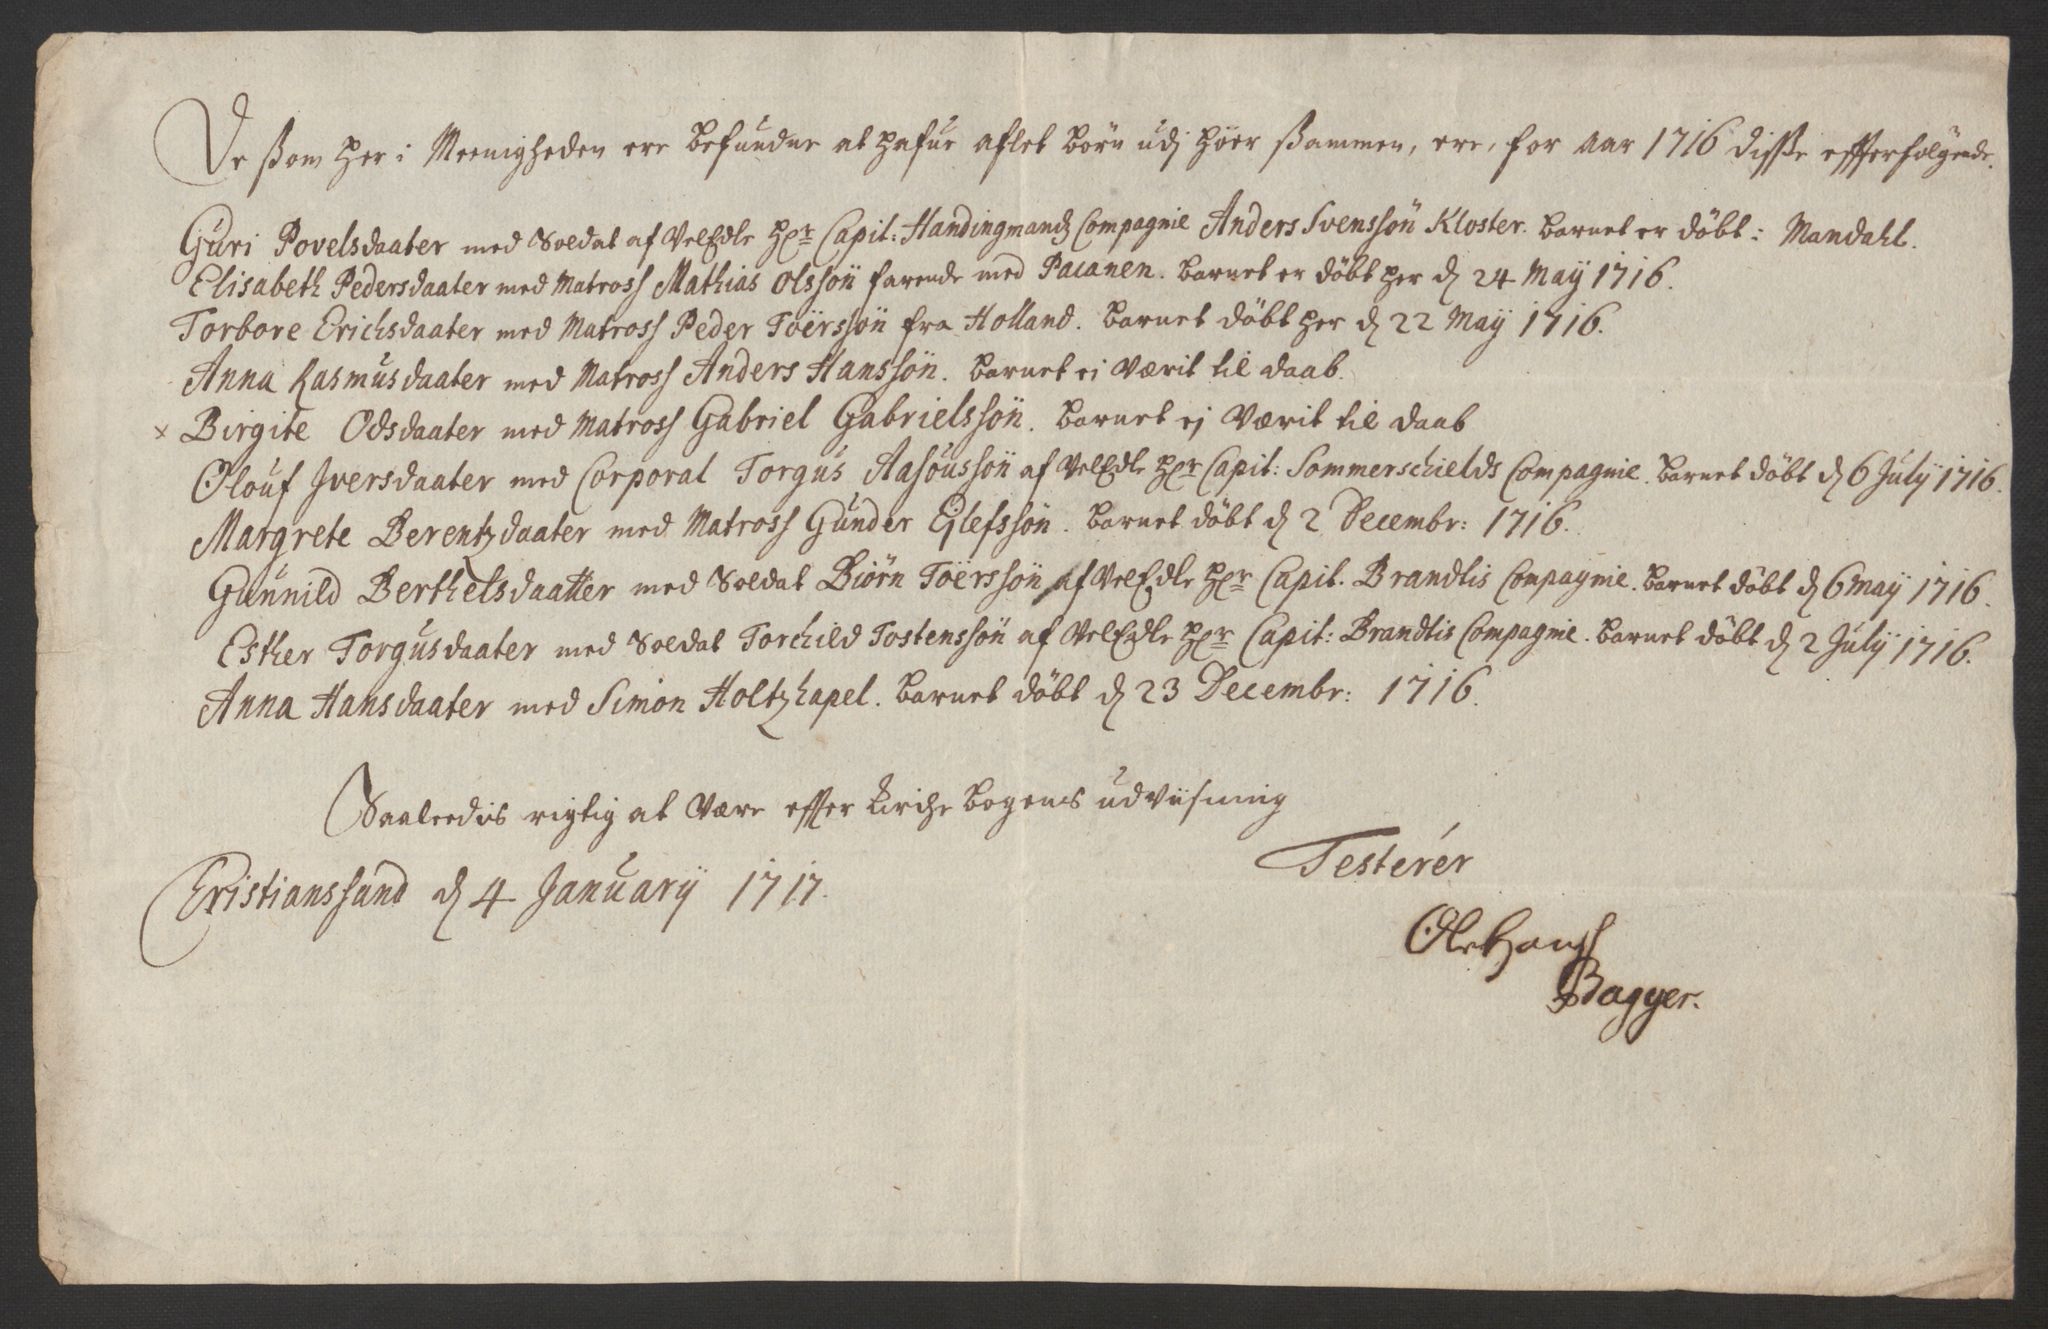 De ßom her i Meenigheden ere befundne at hafue aflet børn udj hoer ßammen, ere, for Aar 1716 disße effterfølgende.
Guri Povelsdaater med Soldat af VelEdle Hr Capit: Handingmands Compagnie Anders Svenssøn Kloster. barnet er døbt i Mandahl.
Elisabeth Pedersdaater med Matross Mathias Olssøn farende med Pacanen. barnet er døbt her d 24 Maÿ 1716.
Torbore Erichsdaater med Matross Peder Toërssøn fra Holland. barnet døbt her d 22 Maÿ 1716.
Anna Rasmusdaater med Matross Anders Hanssøn. barnet ei Værit til daab.
x Birgite Odsdaater med Matross Gabriel Gabrielssøn. barnet ej Værit til daab
Olouf Jversdaater med Corporal Torgus Aasoussøn af VelEdle Hr Capit: Sommerschields Compagnie. barnet døbt d 6 Julÿ 1716.
Margrete Berentzdaater med Matross Gunder Ejlefssøn. barnet døbt d 2 Decembr: 1716.
Gunnild Berthelsdaatter med Soldat Biørn Toërssøn af VelEdle Hr Capit. Brandtis Compagnie. barnet døbt d 6 Maÿ 1716.
Esther Torgusdaater med Soldat Torchild Tostenssøn af VelEdle Hr Capit: Brandtis Compagnie. barnet døbt d 2 Julÿ 1716.
Anna Hansdaater med Simon Holtzhapel. barnet døbt d 23 Decembr: 1716.
Saaleedis rigtig at Være effter Kirche bogens udviisning
Testerér
Cristianssand d 4 Januarÿ 1717.
Ole Hanss
Bagger.